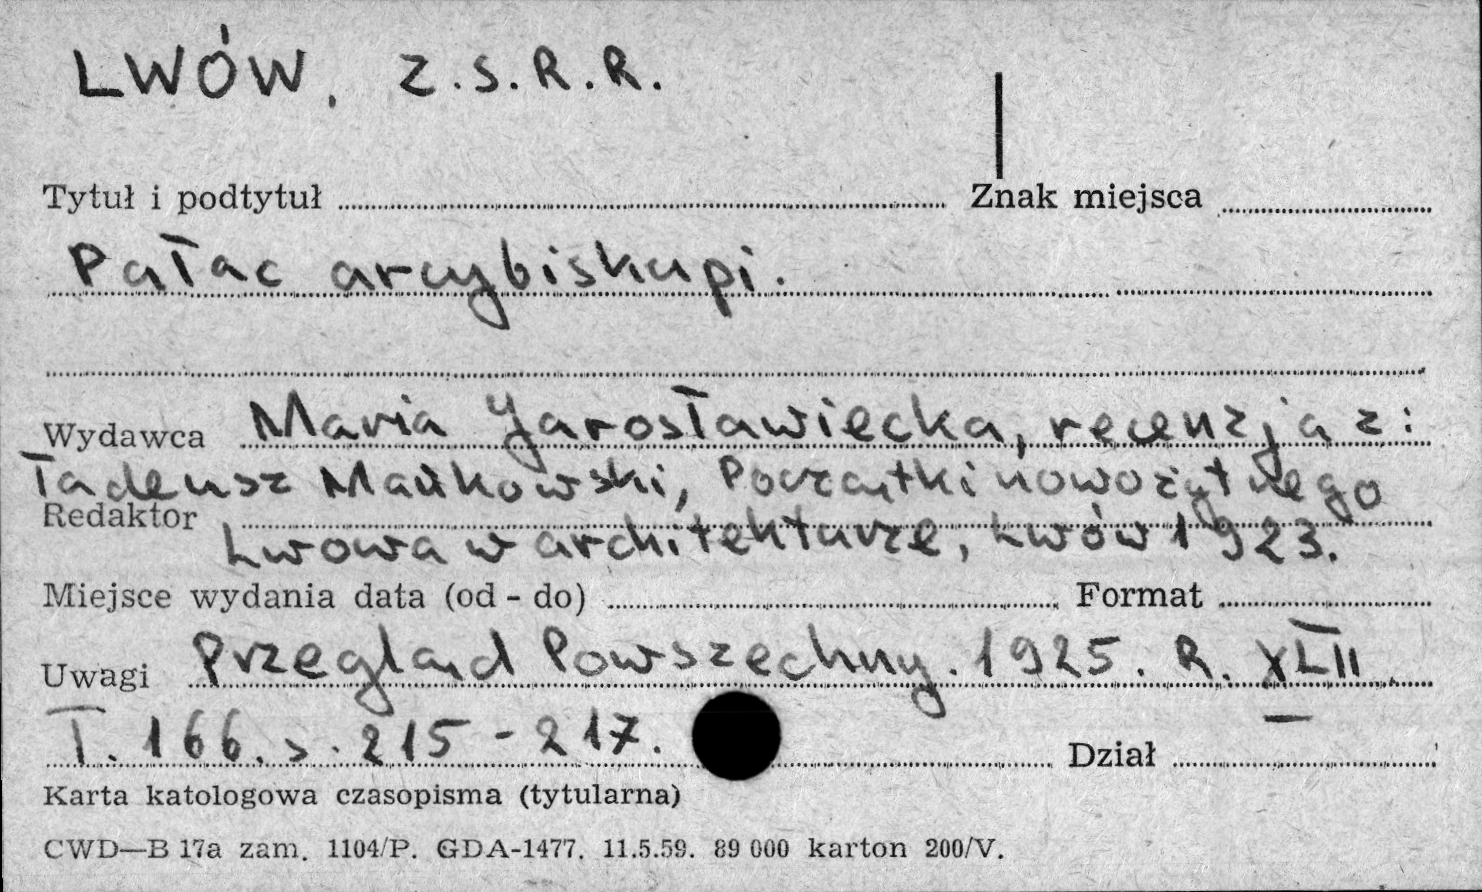 LWÓW, Z.S.R.R.
Tytuł i podtytuł Znak miejsca
Pałac arcybiskupi.
Wydawca Maria Jarosławiecka, recenzja z:
Tadeusz Mańkowski, Początki nowożytnego
Redaktor
Lwowa w architekturze, Lwów 1923.
Miejsce wydania data (od - do) Format
Uwagi Przegląd Powszechny. 1925. R. XLII
T. 166. s. 215 - 217. Dział
Karta katologowa czasopisma (tytularna)
CWD—B 17a zam. 1104/P. GDA-1477. 11.5.59. 89 000 karton 200/V.